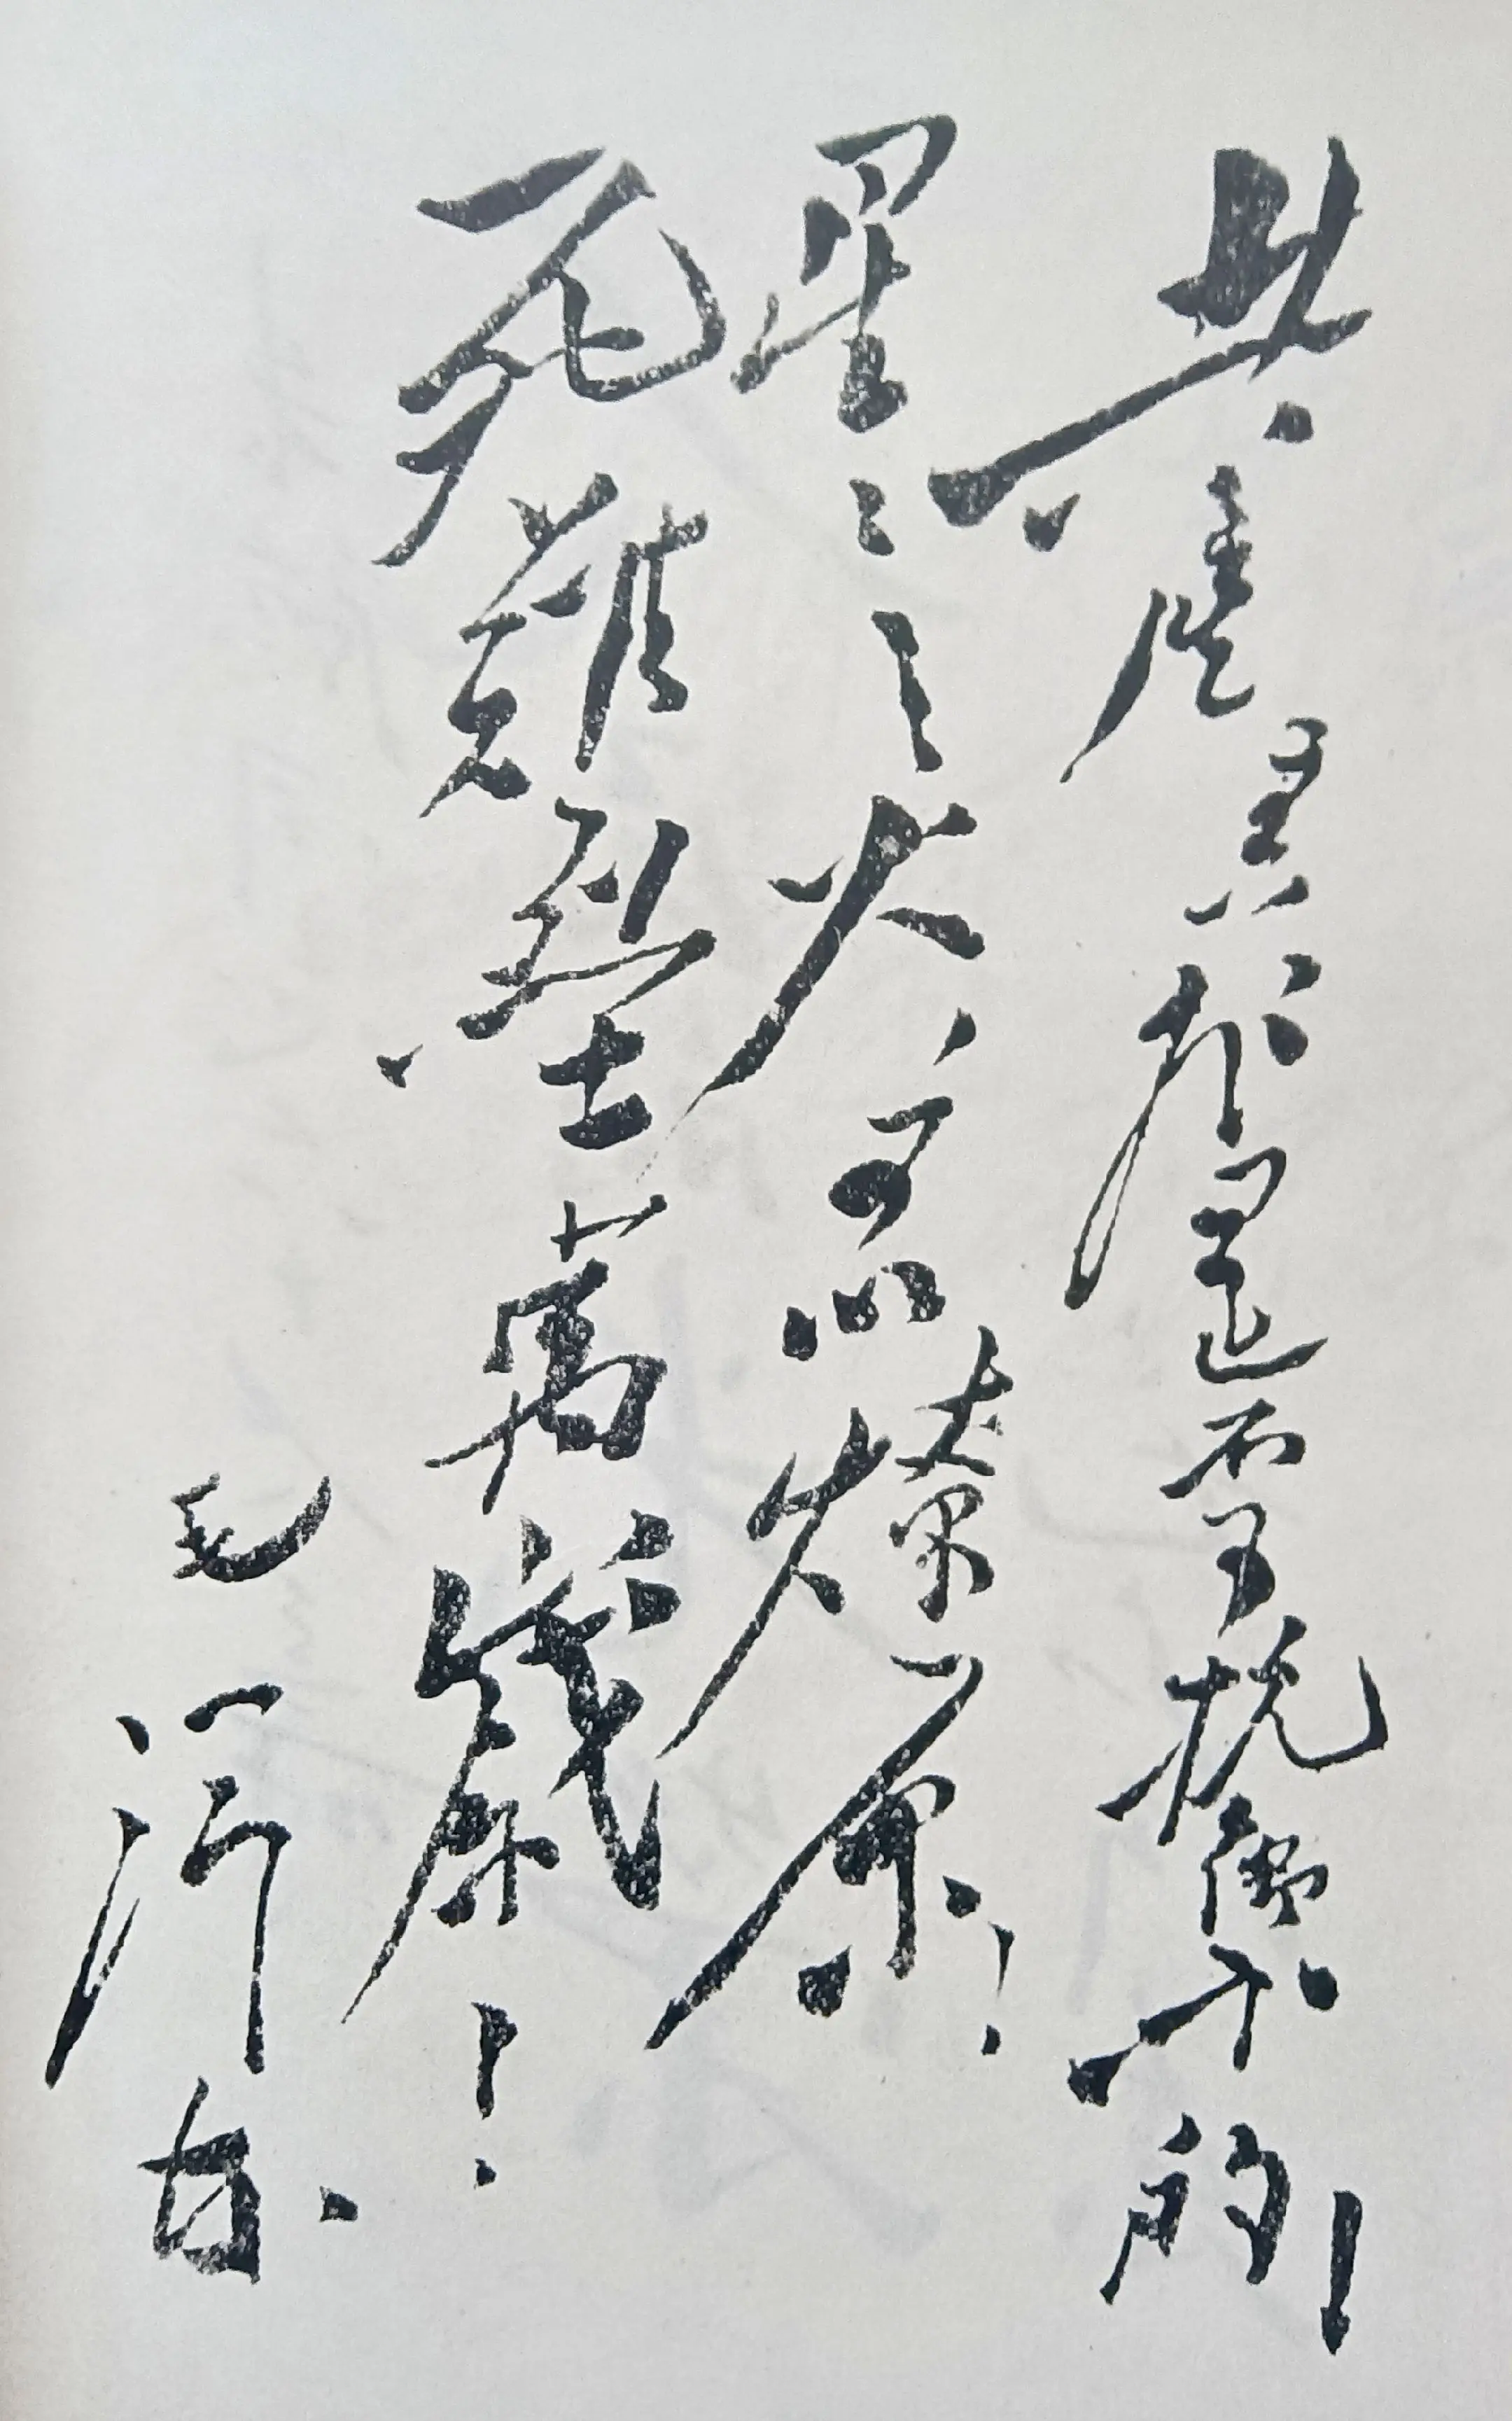 共產主義是不可抗御的!
星星之火,可以燎原!
死難烈士萬歲!
毛澤東